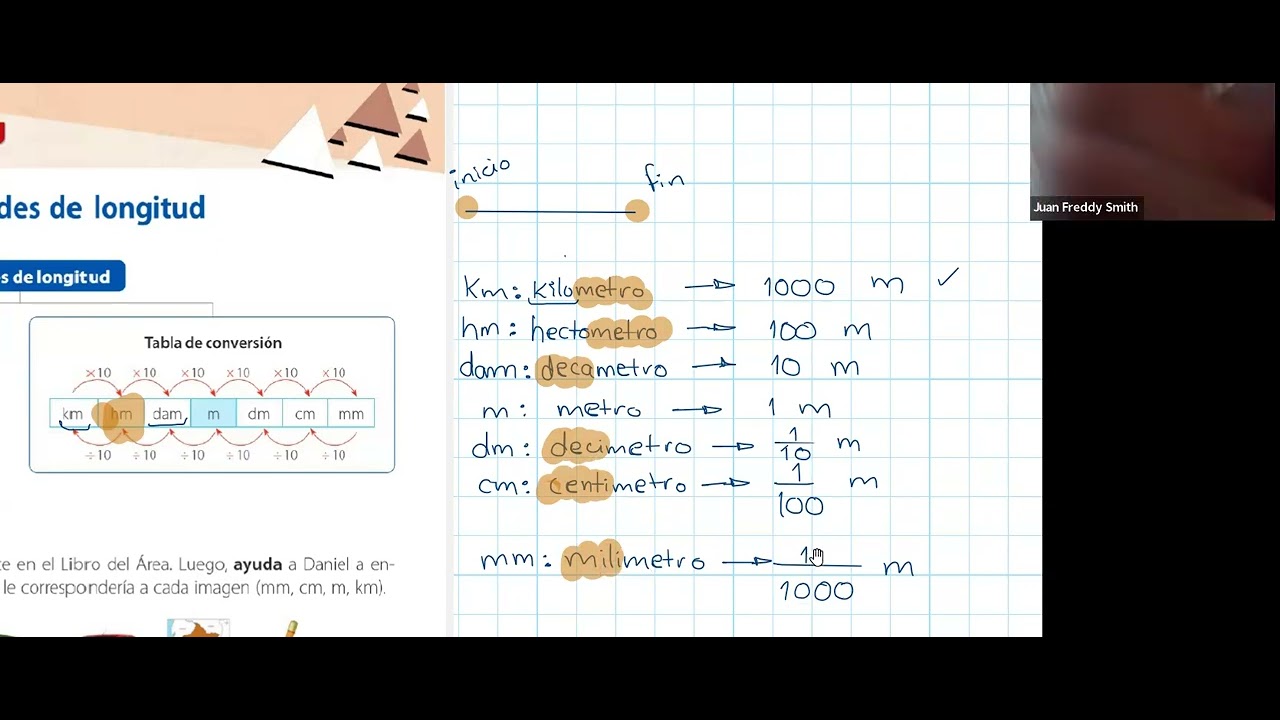 des de longitud
s de longitud
Tabla de conversión
×10 ×10 ×10 ×10 ×10 ×10
km hm dam m dm cm mm
÷10 ÷10 ÷10 ÷10 ÷10 ÷10
te en el Libro del Área. Luego, ayuda a Daniel a en-
le correspondería a cada imagen (mm, cm, m, km).
inicio fin
km: kilometro → 1000 m ✓
hm: hectometro → 100 m
dam: decametro → 10 m
m: metro → 1 m
dm: decimetro → 1/10 m
cm: centimetro → 1/100 m
mm: milimetro → 1/1000 m
Juan Freddy Smith